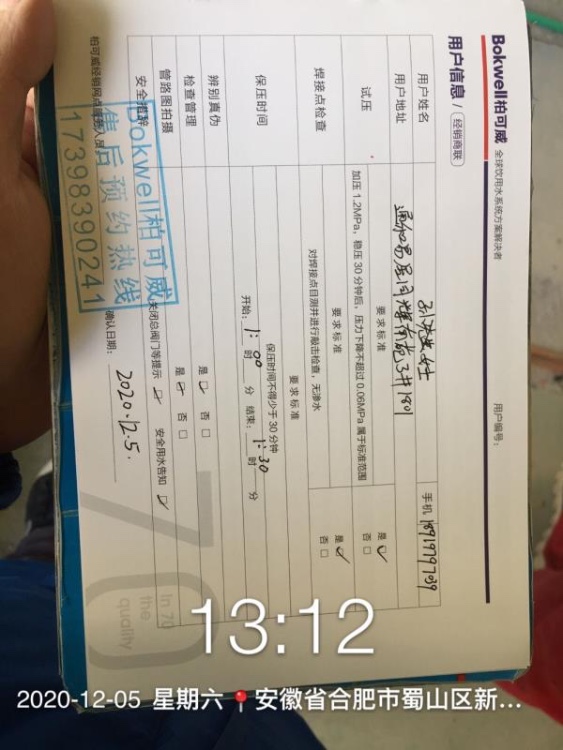 Bokwell柏可威 全球饮用水系统方案解决者
用户编号：
用户信息 / 经销商联
用户姓名 女士 手机 18919797039
用户地址 3#1801
试压 要求标准
加压 1.2MPa，稳压 30 分钟后，压力下降不超过 0.06MPa 属于标准范围 是☑ 否□
焊接点检查 要求标准
对焊接点目测并进行敲击检查，无渗水 是☑ 否□
保压时间 要求标准
保压时间不得少于 30 分钟
开始：1:00 时 分 结束：1:30 时 分
辨别真伪 是☑ 否□
检查管理 是☑ 否□
管路图拍摄
安全提醒 关闭总阀门等提示 ☑ 安全用水告知 ☑
柏可威经销网点
确认日期：2020.12.5.
Bokwell柏可威
售后预约热线
17398390241
70
In 70
the
quality
13:12
2020-12-05 星期六 安徽省合肥市蜀山区新...